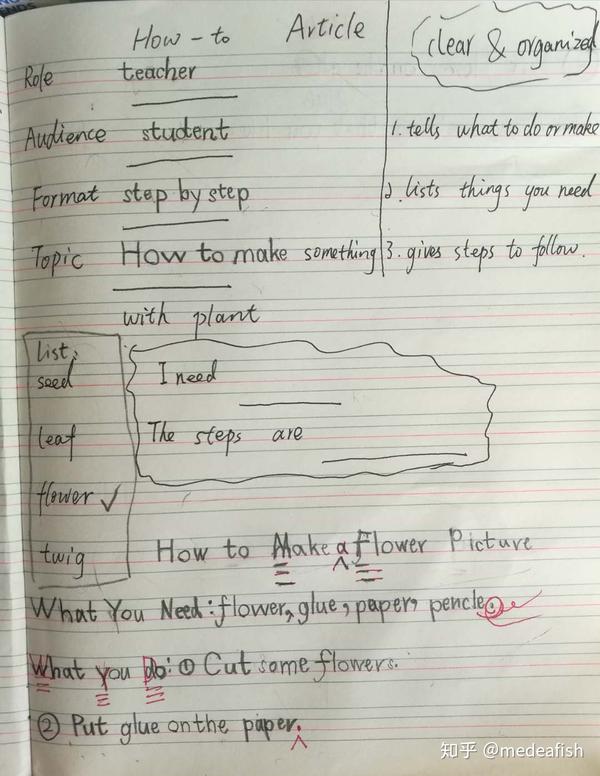 How-to Article
clear & organized
Role teacher
Audience student
1. tells what to do or make
Format step by step
2. lists things you need
Topic How to make something
3. gives steps to follow.
with plant
list:
seed
leaf
flower ✓
twig
I need
The steps are
How to Make a Flower Picture
What You Need: flower, glue, paper, pencle.
What you do: ① Cut some flowers.
② Put glue on the paper.
知乎 @medeafish